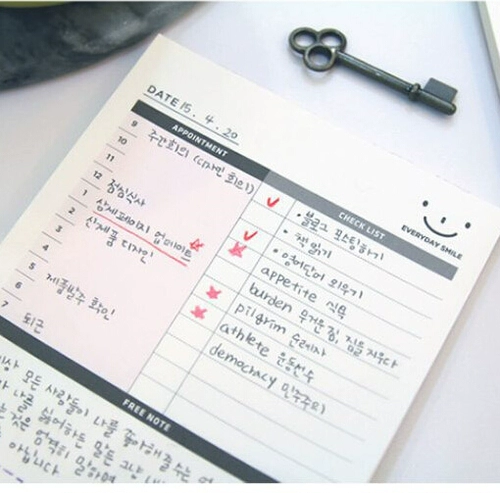 DATE 15. 4. 20
APPOINTMENT
9
10 주간회의 (디자인 회의)
11
12 점심식사
1 상세페이지 업데이트
2 신제품 디자인
3
4
5 제품발주 확인
6
7 퇴근
CHECK LIST
EVERYDAY SMILE
• 블로그 포스팅하기
• 책 읽기
• 영어단어 외우기
appetite 식욕
burden 무거운 짐, 짐을 지우다
pilgrim 순례자
athlete 운동선수
democracy 민주주의
FREE NOTE
모든 사람들이 나를 좋아해줄 수는